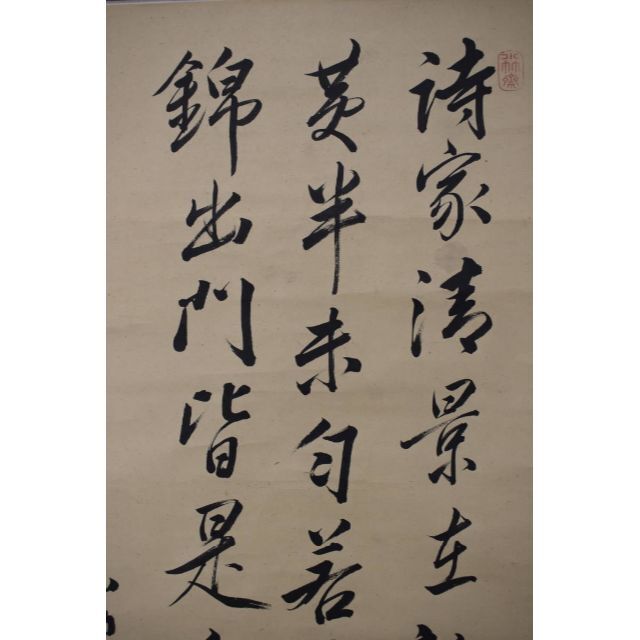 詩家清景在
黄半未匀若
錦出門皆是